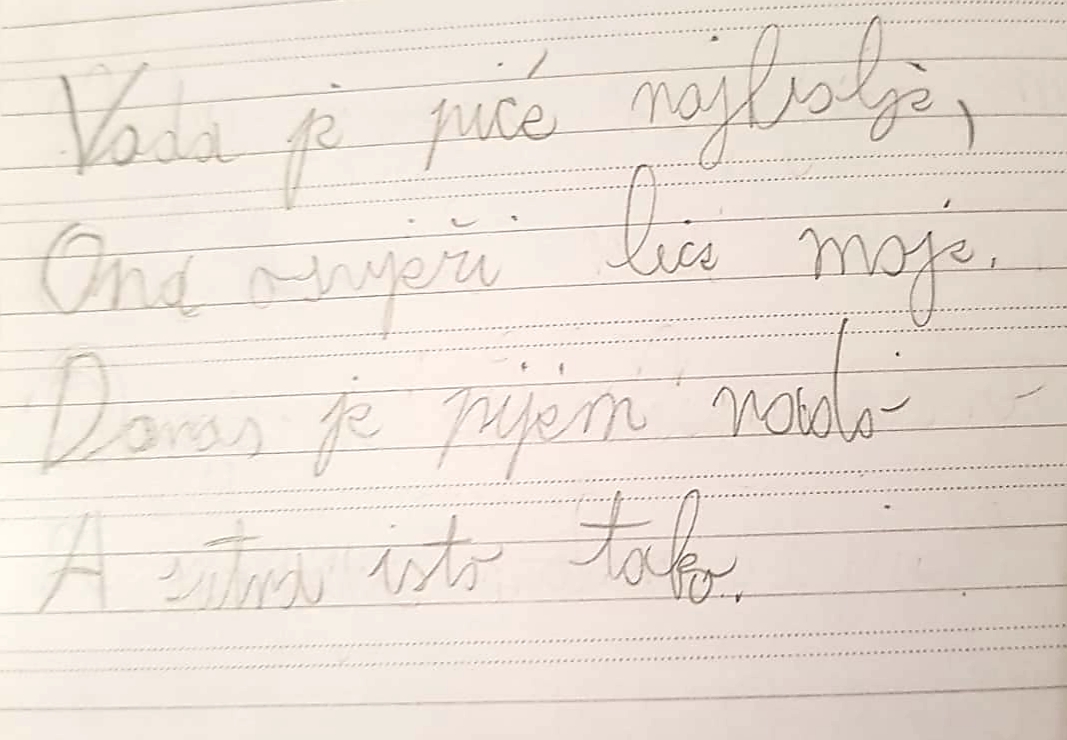 Vada je piće najbolje,
Ona osvježi lice moje.
Danas je pijem rado
A sutra isto tako.